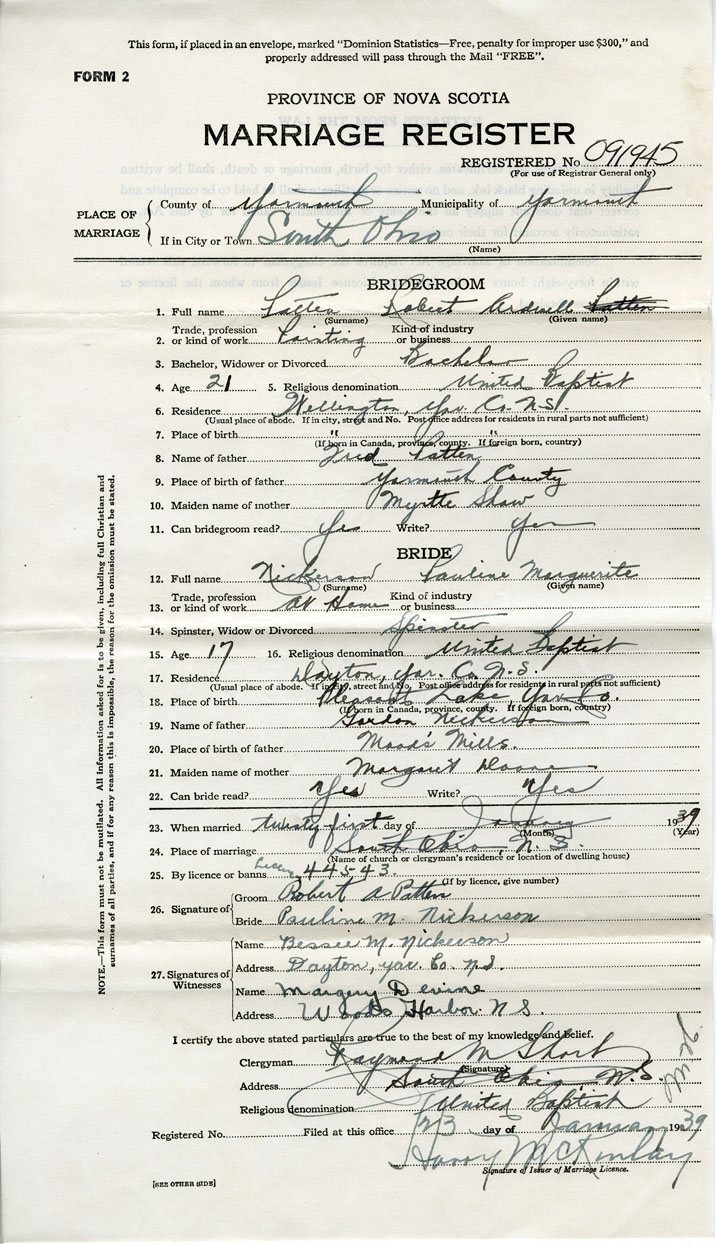 This form, if placed in an envelope, marked "Dominion Statistics—Free, penalty for improper use $300," and
properly addressed will pass through the Mail "FREE".
FORM 2
PROVINCE OF NOVA SCOTIA
MARRIAGE REGISTER
REGISTERED No. 091945
(For use of Registrar General only)
PLACE OF MARRIAGE
County of Yarmouth Municipality of Yarmouth
If in City or Town South Ohio
(Name)
BRIDEGROOM
1. Full name Patten Robert Ardwell Patten
(Surname) (Given name)
2. Trade, profession or kind of work Painting Kind of industry or business
3. Bachelor, Widower or Divorced Bachelor
4. Age 21 5. Religious denomination United Baptist
6. Residence Wellington, Yar. Co. N.S.
(Usual place of abode. If in city, street and No. Post office address for residents in rural parts not sufficient)
7. Place of birth " "
(If born in Canada, province, county. If foreign born, country)
8. Name of father Fred Patten
9. Place of birth of father Yarmouth County
10. Maiden name of mother Myrtle Shaw
11. Can bridegroom read? Yes Write? Yes
BRIDE
12. Full name Nickerson Pauline Marguerite
(Surname) (Given name)
13. Trade, profession or kind of work At Home Kind of industry or business
14. Spinster, Widow or Divorced Spinster
15. Age 17 16. Religious denomination United Baptist
17. Residence Dayton, Yar. Co. N.S.
(Usual place of abode. If in city, street and No. Post office address for residents in rural parts not sufficient)
18. Place of birth Pleasant Lake Yar Co.
(If born in Canada, province, county. If foreign born, country)
19. Name of father Gordon Nickerson
20. Place of birth of father Mood's Mills.
21. Maiden name of mother Margaret Doane
22. Can bride read? Yes Write? Yes
23. When married twenty-first day of January 1939
(Month) (Year)
24. Place of marriage South Ohio, N.S.
(Name of church or clergyman's residence or location of dwelling house)
25. By licence or banns 44543.
(If by licence, give number)
26. Signature of
Groom Robert A Patten
Bride Pauline M. Nickerson
27. Signatures of Witnesses
Name Bessie M. Nickerson
Address Dayton, Yar Co. N.S.
Name Margery Devine
Address Woods Harbor N.S.
I certify the above stated particulars are true to the best of my knowledge and belief.
Clergyman Raymond M Short
(Signature)
Address South Ohio, N.S.
Religious denomination United Baptist
Registered No. Filed at this office 23 day of January 1939
Harry McKinlay
Signature of Issuer of Marriage Licence.
[SEE OTHER SIDE]
NOTE.—This form must not be mutilated. All information asked for is to be given, including full Christian and
surnames of all parties, and if for any reason this is impossible, the reason for the omission must be stated.